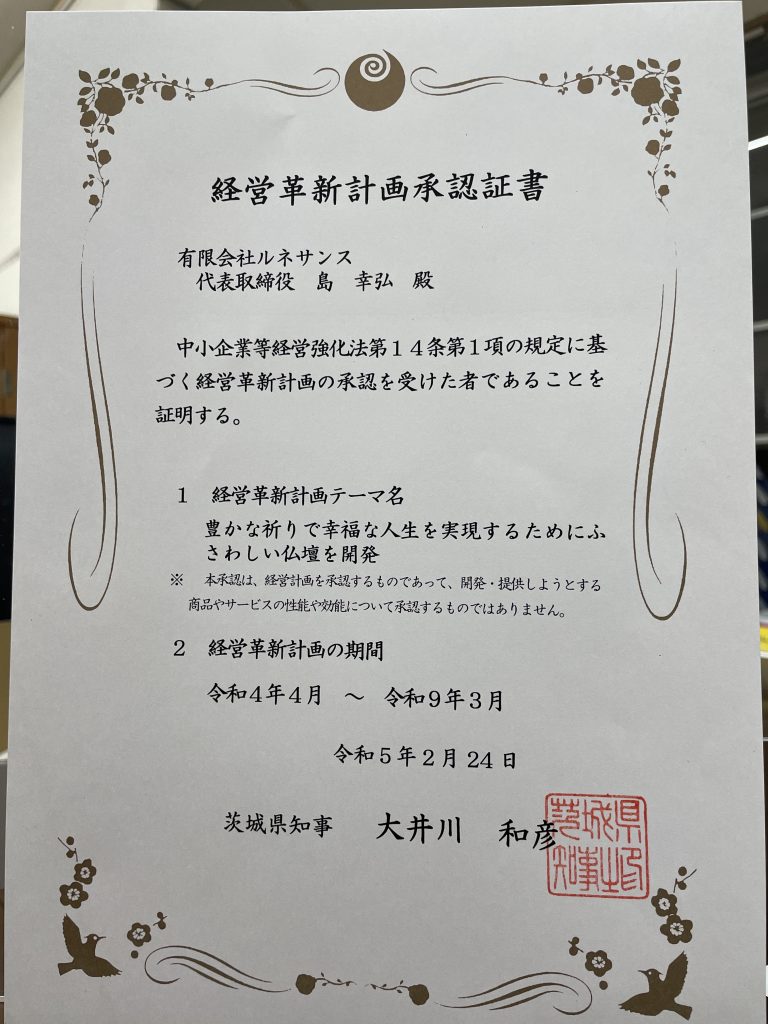 経営革新計画承認証書
有限会社ルネサンス
代表取締役　島　幸弘　殿
中小企業等経営強化法第１４条第１項の規定に基
づく経営革新計画の承認を受けた者であることを
証明する。
１　経営革新計画テーマ名
豊かな祈りで幸福な人生を実現するためにふ
さわしい仏壇を開発
※　本承認は、経営計画を承認するものであって、開発・提供しようとする
商品やサービスの性能や効能について承認するものではありません。
２　経営革新計画の期間
令和４年４月　～　令和９年３月
令和５年２月 24 日
茨城県知事　大井川　和彦
茨城県知事之印